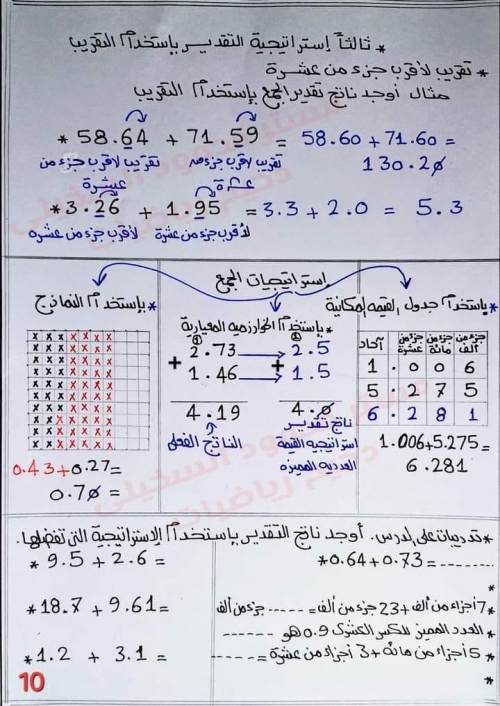 * ثالثاً إستراتيجية التقدير بإستخدام التقريب
* تقريب لأقرب جزء من عشرة
مثال أوجد ناتج تقدير الجمع بإستخدام التقريب
* 58.64 + 71.59 = 58.60 + 71.60 =
130.20
تقريب لأقرب جزء من عشرة
تقريب لأقرب جزء من عشرة
* 3.26 + 1.95 = 3.3 + 2.0 = 5.3
لأقرب جزء من عشرة
لأقرب جزء من عشرة
إستراتيجيات الجمع
* بإستخدام جدول القيمه المكانية
آحاد جزء من عشرة جزء من مائة جزء من ألف
1 . 0 0 6
5 . 2 7 5
6 . 2 8 1
1.006+5.275=
6.281
* بإستخدام الخوارزميه المعيارية
① ①
2.73 → 2.5
+ 1.46 → + 1.5
4.19 4.0
الناتج الفعلى
ناتج تقدير
استراتيجيه القيمة
العدديه المميزه
* بإستخدام النماذج
0.43+0.27=
0.70 =
* تدريبات على الدرس. أوجد ناتج التقدير بإستخدام الإستراتيجية التى تفضلها.
* 9.5 + 2.6 =
* 0.64 + 0.73 = --------
* 18.7 + 9.61 =
* 7 أجزاء من ألف + 23 جزء من ألف = ----- جزء من ألف
* العدد المميز للكسر العشرى 0.9 هو -------
* 1.2 + 3.1 =
* 5 أجزاء من مائة + 3 أجزاء من عشرة = -----
10